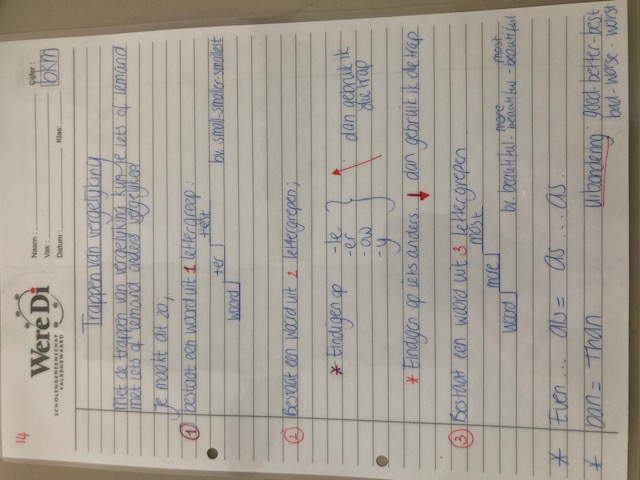 14
Were Di
SCHOLENGEMEENSCHAP
VALKENSWAARD
Naam :
Vak :
Datum :
Klas:
Cijfer :
bkm
Trappen van vergelijking
Met de trappen van vergelijking kun je iets of iemand
met iets of iemand anders vergelijken
Je maakt dit zo;
① bestaat een woord uit 1 lettergreep:
woord +er +est bv. small-smaller-smallest
② Bestaat een woord uit 2 lettergrepen;
* Eindigen op -le
-er
-ow
-y
dan gebruik ik
die trap
* Eindigen op iets anders. dan gebruik ik die trap
③ Bestaat een woord uit 3 lettergrepen
woord more most bv. beautiful-more beautiful-most beautiful
* Even ... als = as ... as
* Dan = Than
Uitzondering: good-better-best
bad-worse-worst